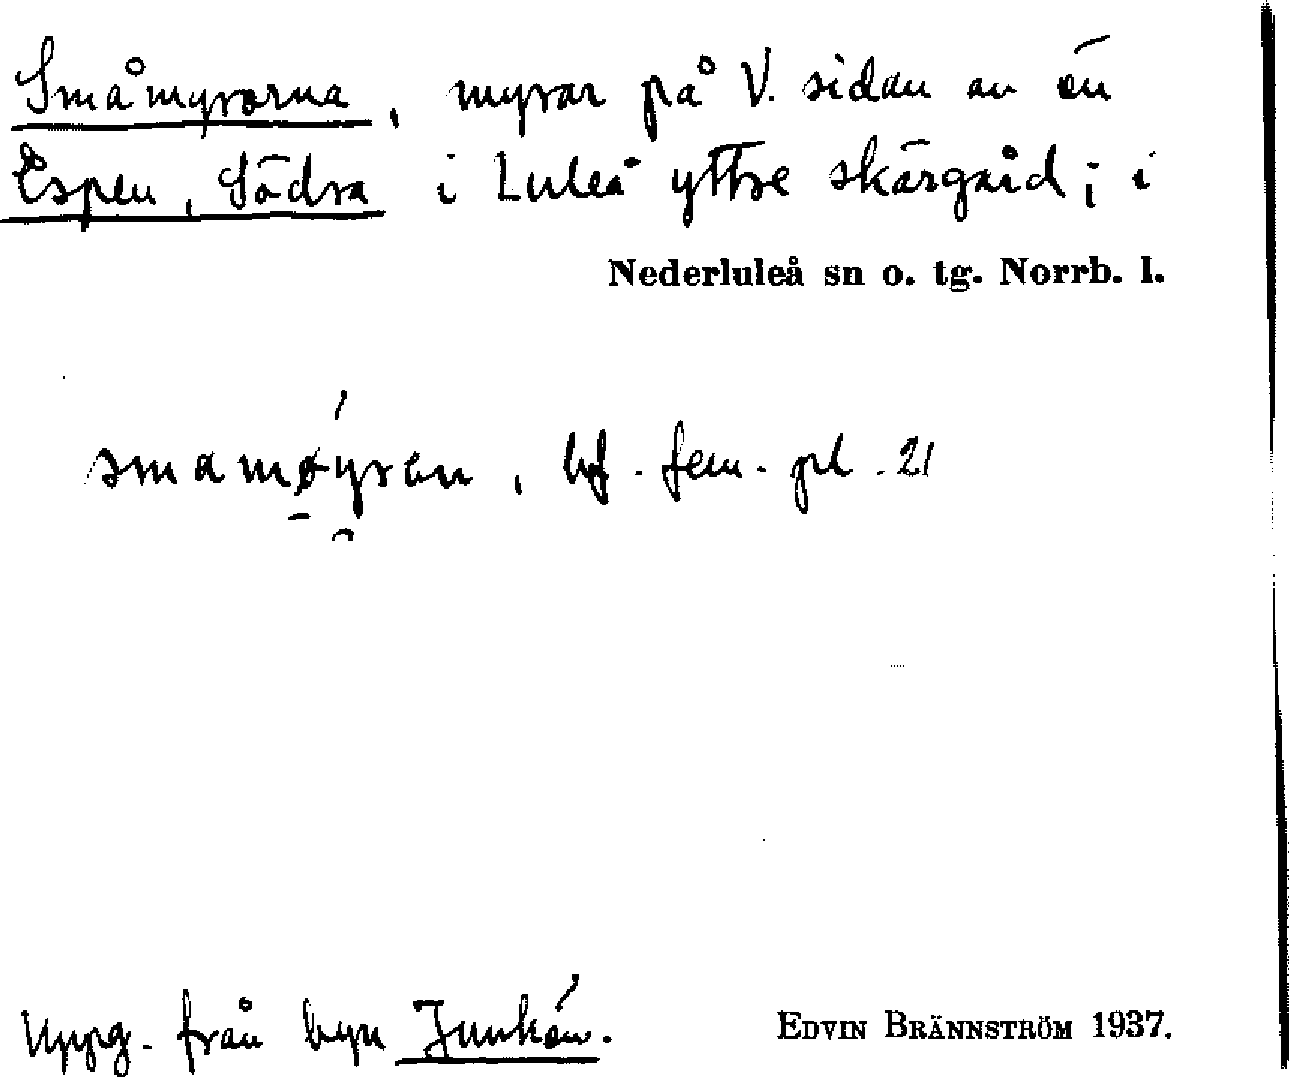 Småmyrorna, myrar på V. sidan av ön
Espen, Södra i Luleå yttre skärgård; i
Nederluleå sn o. tg. Norrb. l.
smamøyran, bf. fem. pl. 21
Uppg. från byn Junkön.
EDVIN BRÄNNSTRÖM 1937.